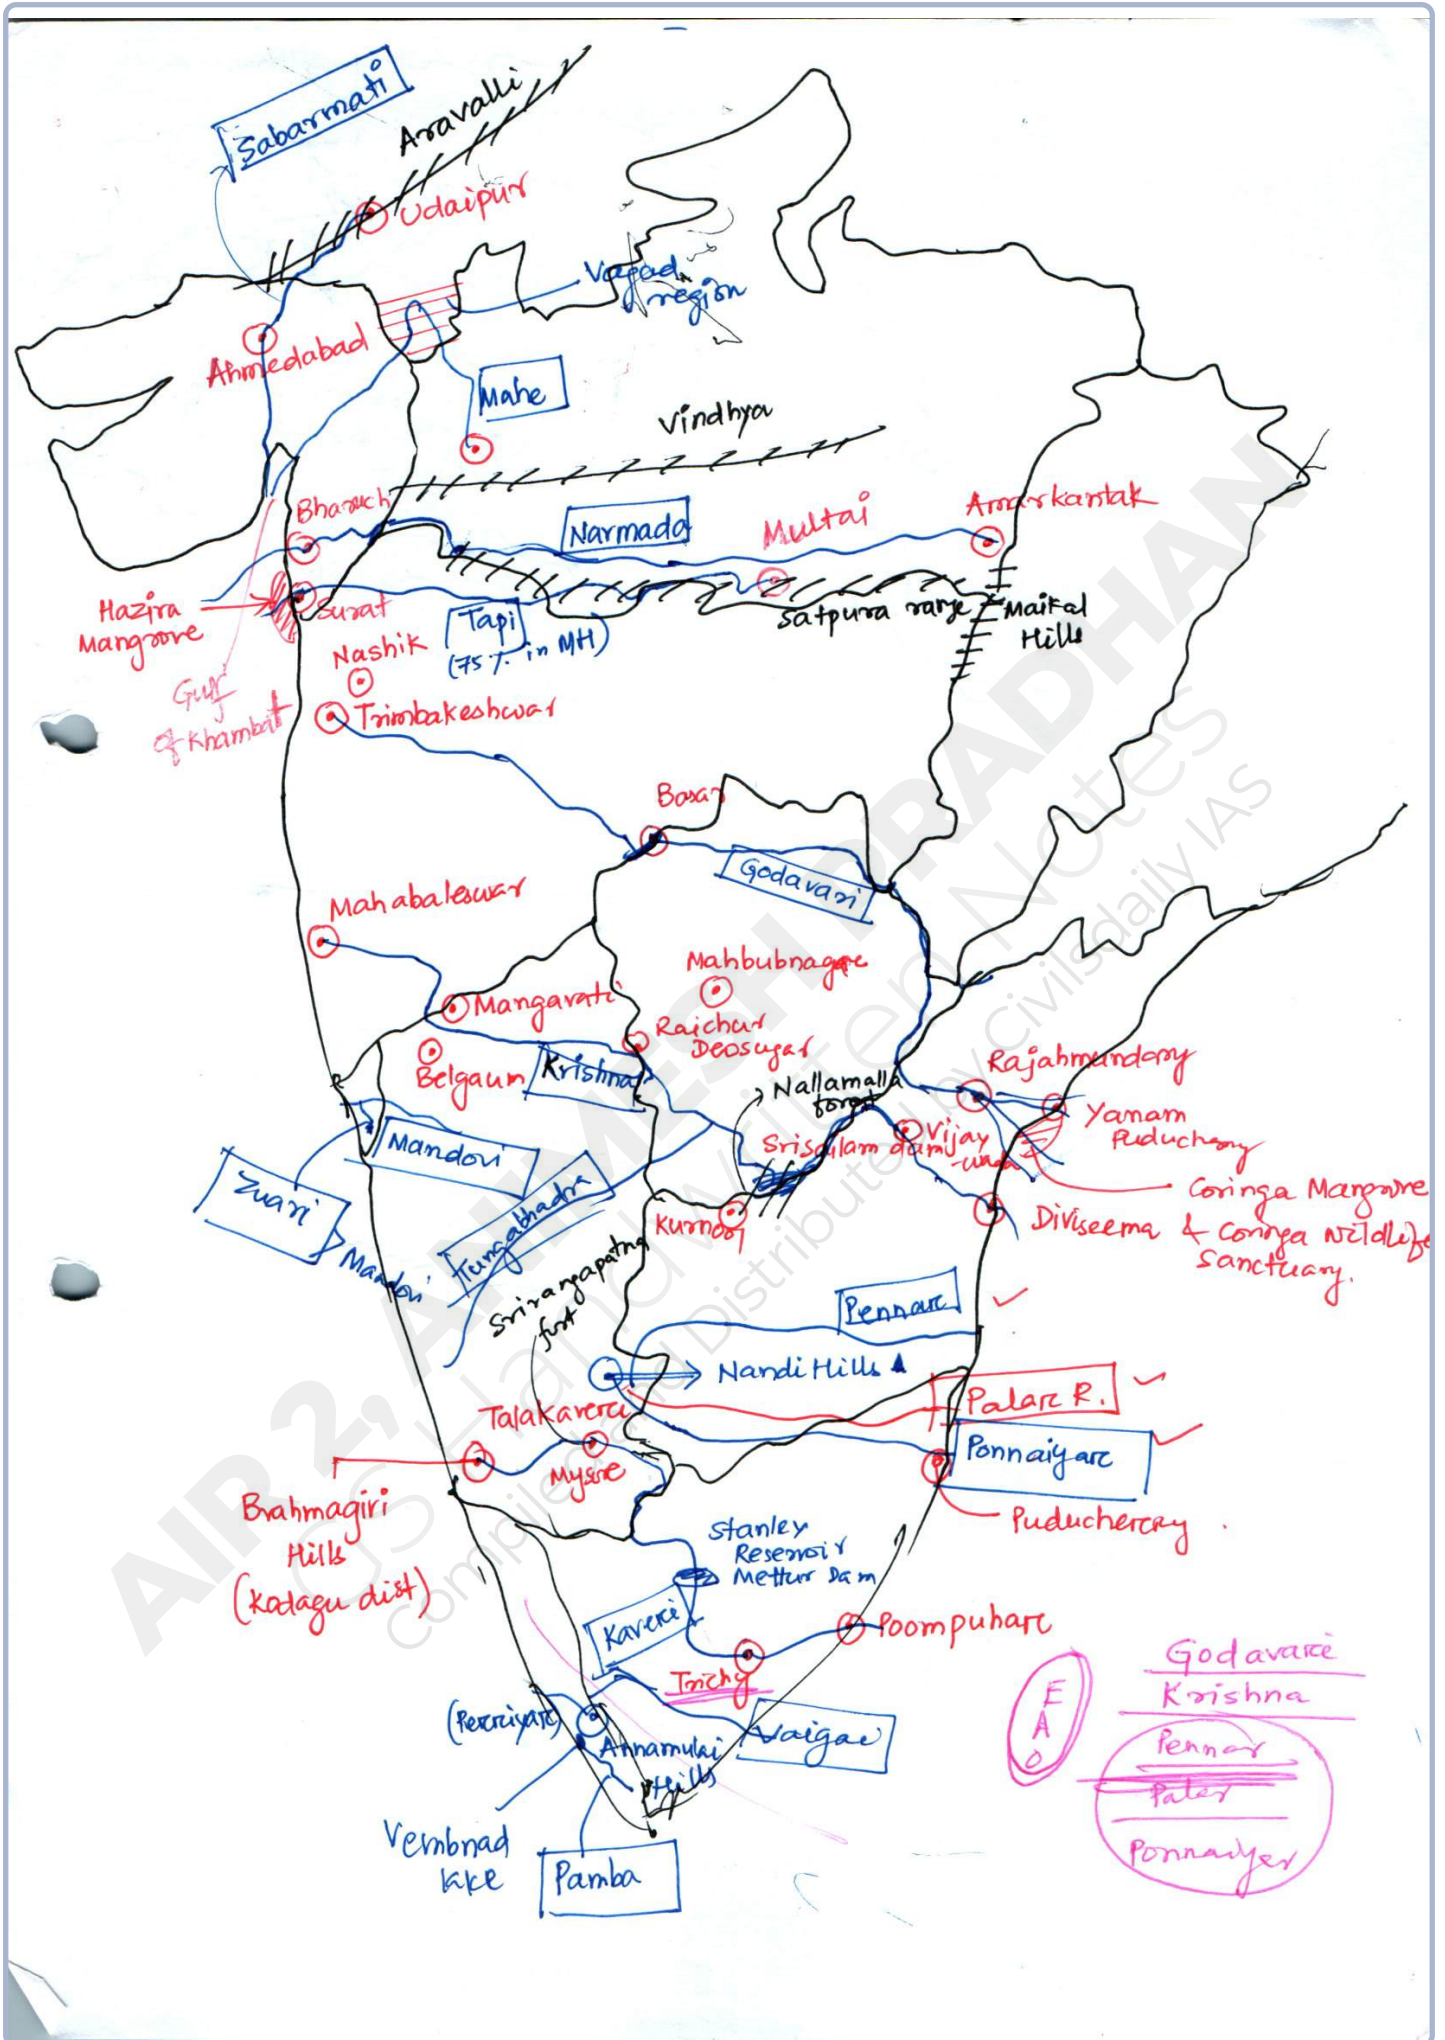 Sabarmati
Aravalli
Udaipur
Vagad
region
Ahmedabad
Mahe
Vindhya
Bharuch
Narmada
Multai
Amarkantak
Hazira
Mangrove
Surat
Tapi
(75% in MH)
Satpura range
Maikal
Hills
Nashik
Gulf
of Khambat
Trimbakeshwar
Basar
Godavari
Mahabaleswar
Mahbubnagar
Mangavati
Raichur
Deosugar
Belgaum
Krishna
Nallamalla
forest
Rajahmundary
Yanam
Puducherry
Mandovi
Srisailam dam
Vijay
-wada
Zuari
Mandovi
Tungabhadra
Kurnool
Coringa Mangrove
Diviseema
& Coringa Wildlife
Sanctuary.
Srirangapatna
fort
Pennar
Nandi Hills
Talakaveri
Palar R.
Mysore
Ponnaiyar
Brahmagiri
Hills
(Kodagu dist)
Puducherry
Stanley
Reservoir
Mettur Dam
Kaveri
Poompuhar
Trichy
(Perriyar)
Annamulai
Hills
Vaigai
Vembnad
lake
Pamba
Godavari
Krishna
Pennar
Palar
Ponnaiyer
E
A
O
AIR 2, ANIMESH PRADHAN
GS Hand Written Notes
Compiled and Distributed by Civilsdaily IAS